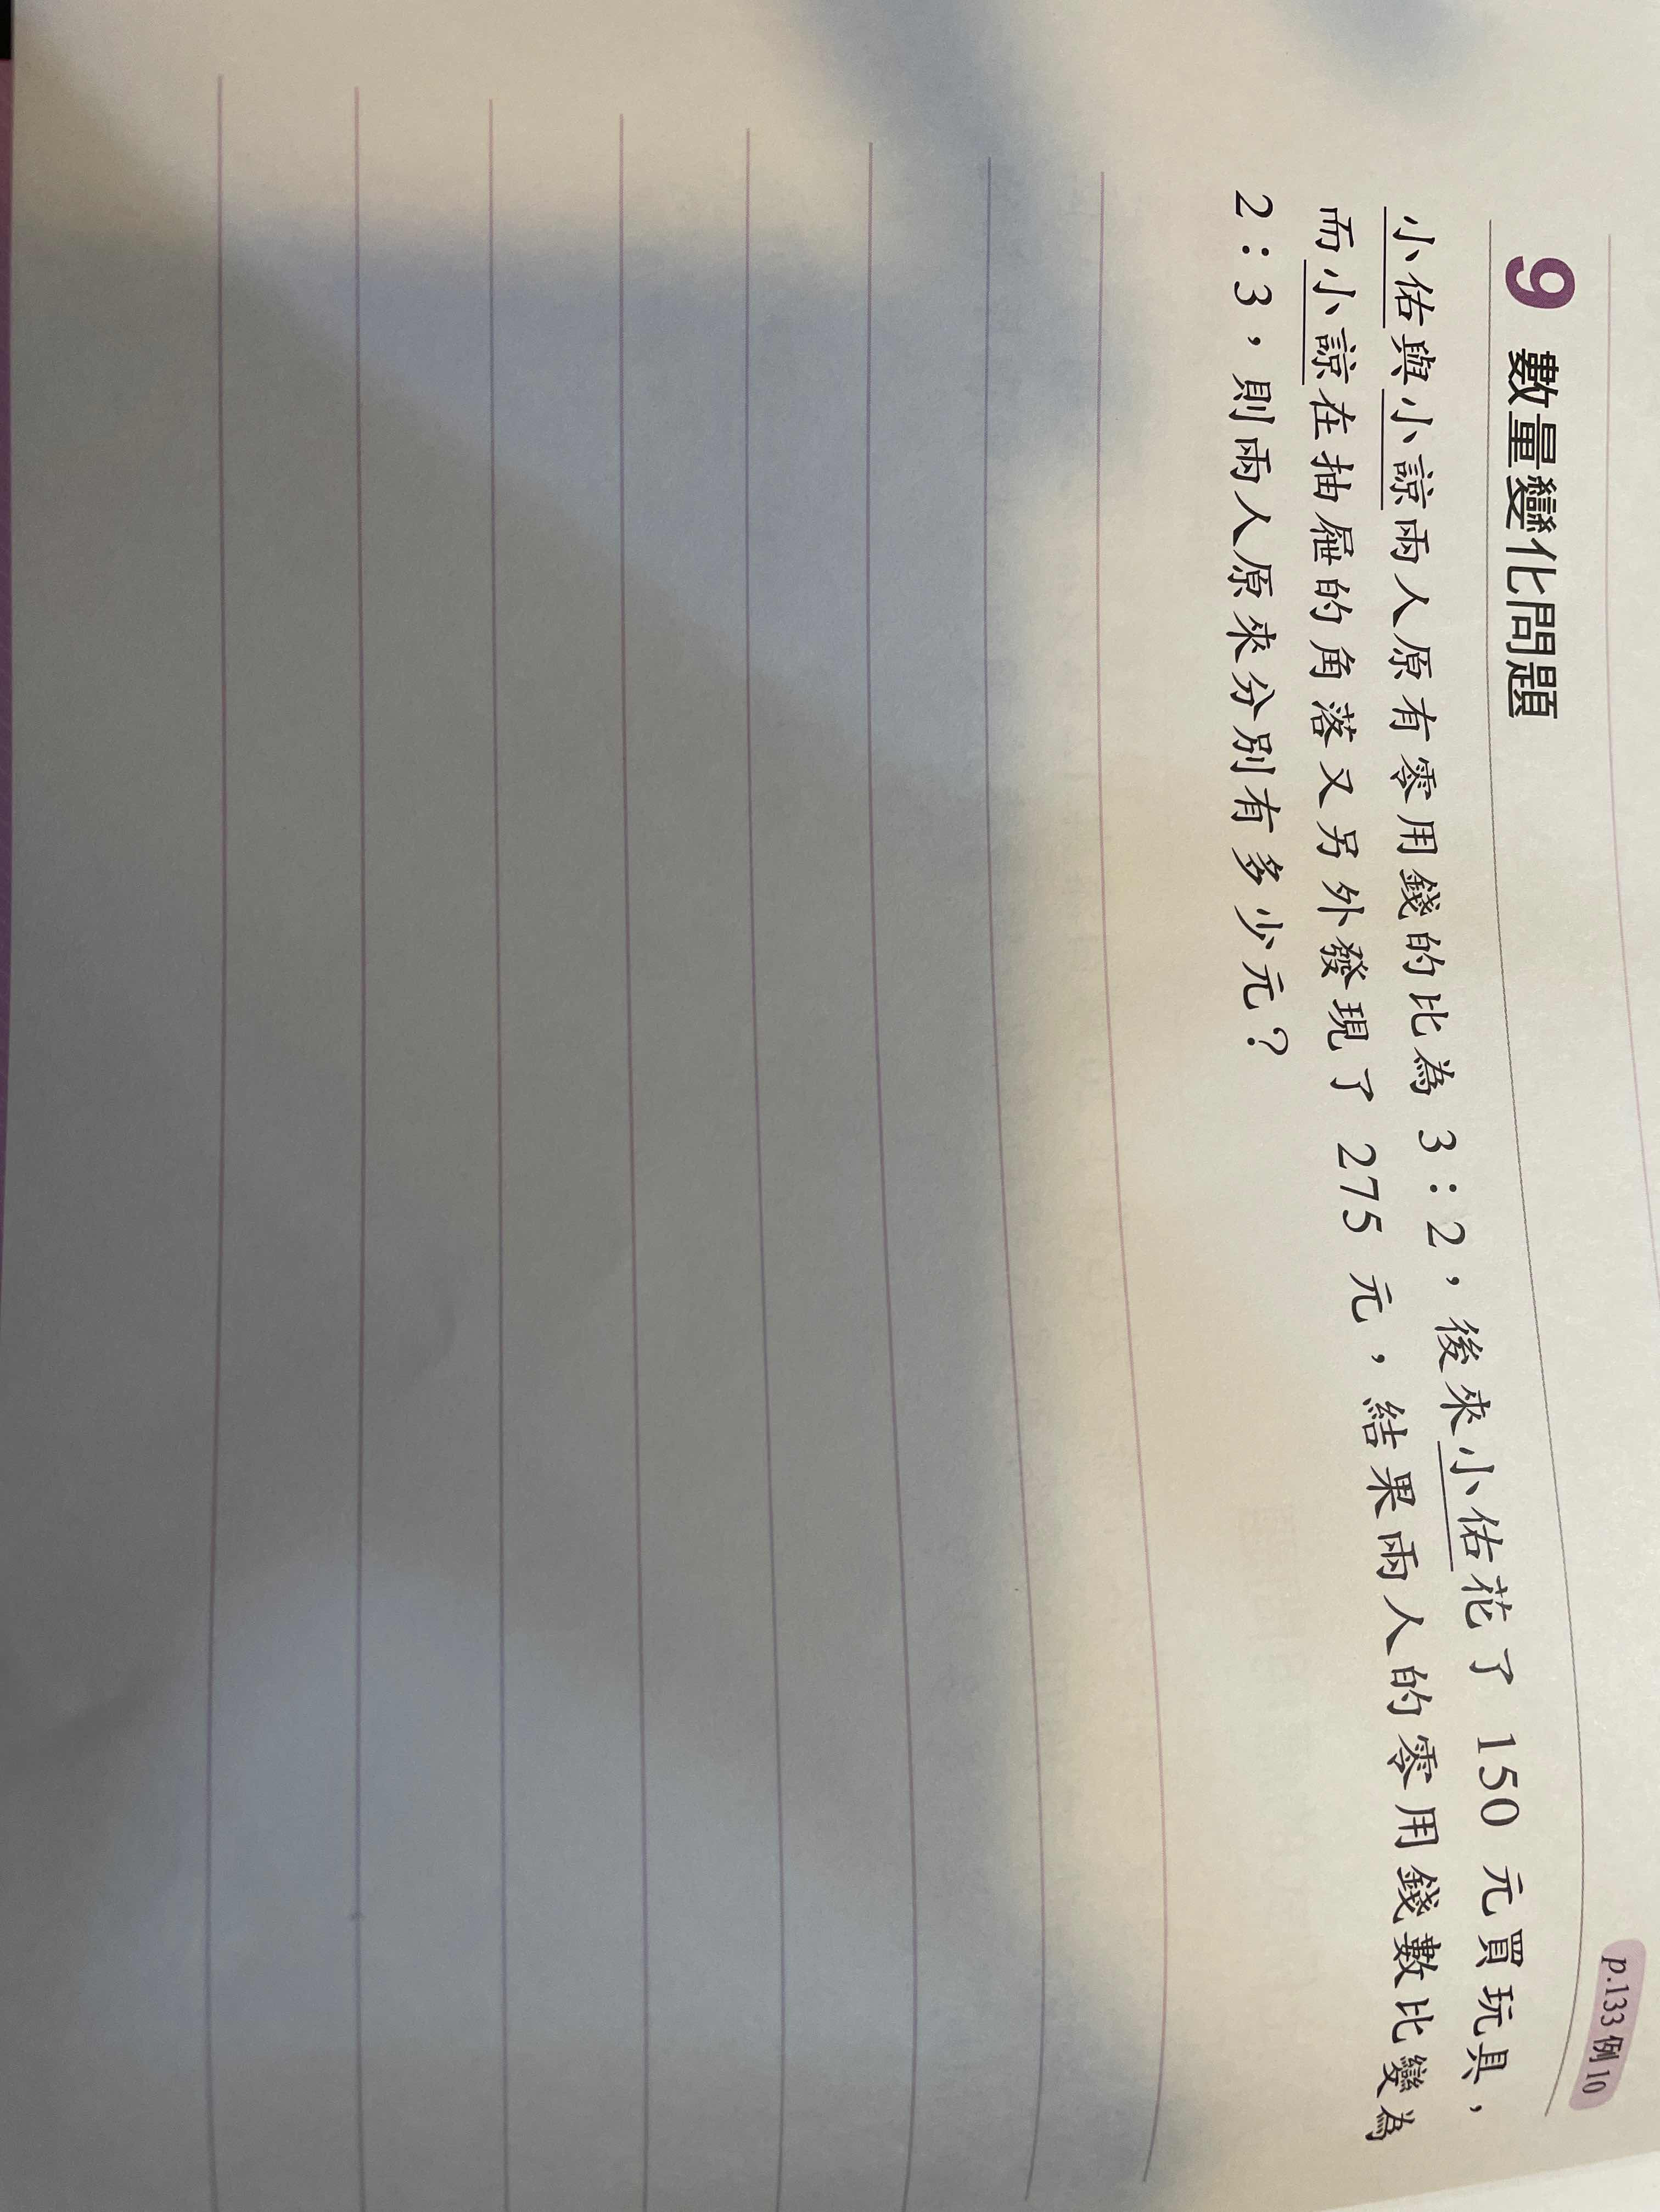 p.133 例10
9 數量變化問題
小佑與小諒兩人原有零用錢的比為 3：2，後來小佑花了 150 元買玩具，
而小諒在抽屜的角落又另外發現了 275 元，結果兩人的零用錢數比變為
2：3，則兩人原來分別有多少元？